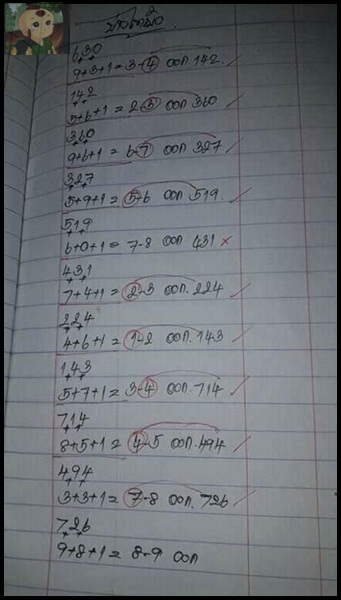 630
9+3+1=3-4 ออก 142.
142
5+6+1=2-3 ออก 360
360
9+6+1=6-7 ออก 327
327
5+9+1=5-6 ออก 519.
519
6+0+1=7-8 ออก 431 ×
431
7+4+1=2-3 ออก.224
224
4+6+1=1-2 ออก.143
143
5+7+1=3-4 ออก.714
714
8+5+1=4-5 ออก.494
494
3+3+1=7-8 ออก.726
726
9+8+1=8-9 ออก